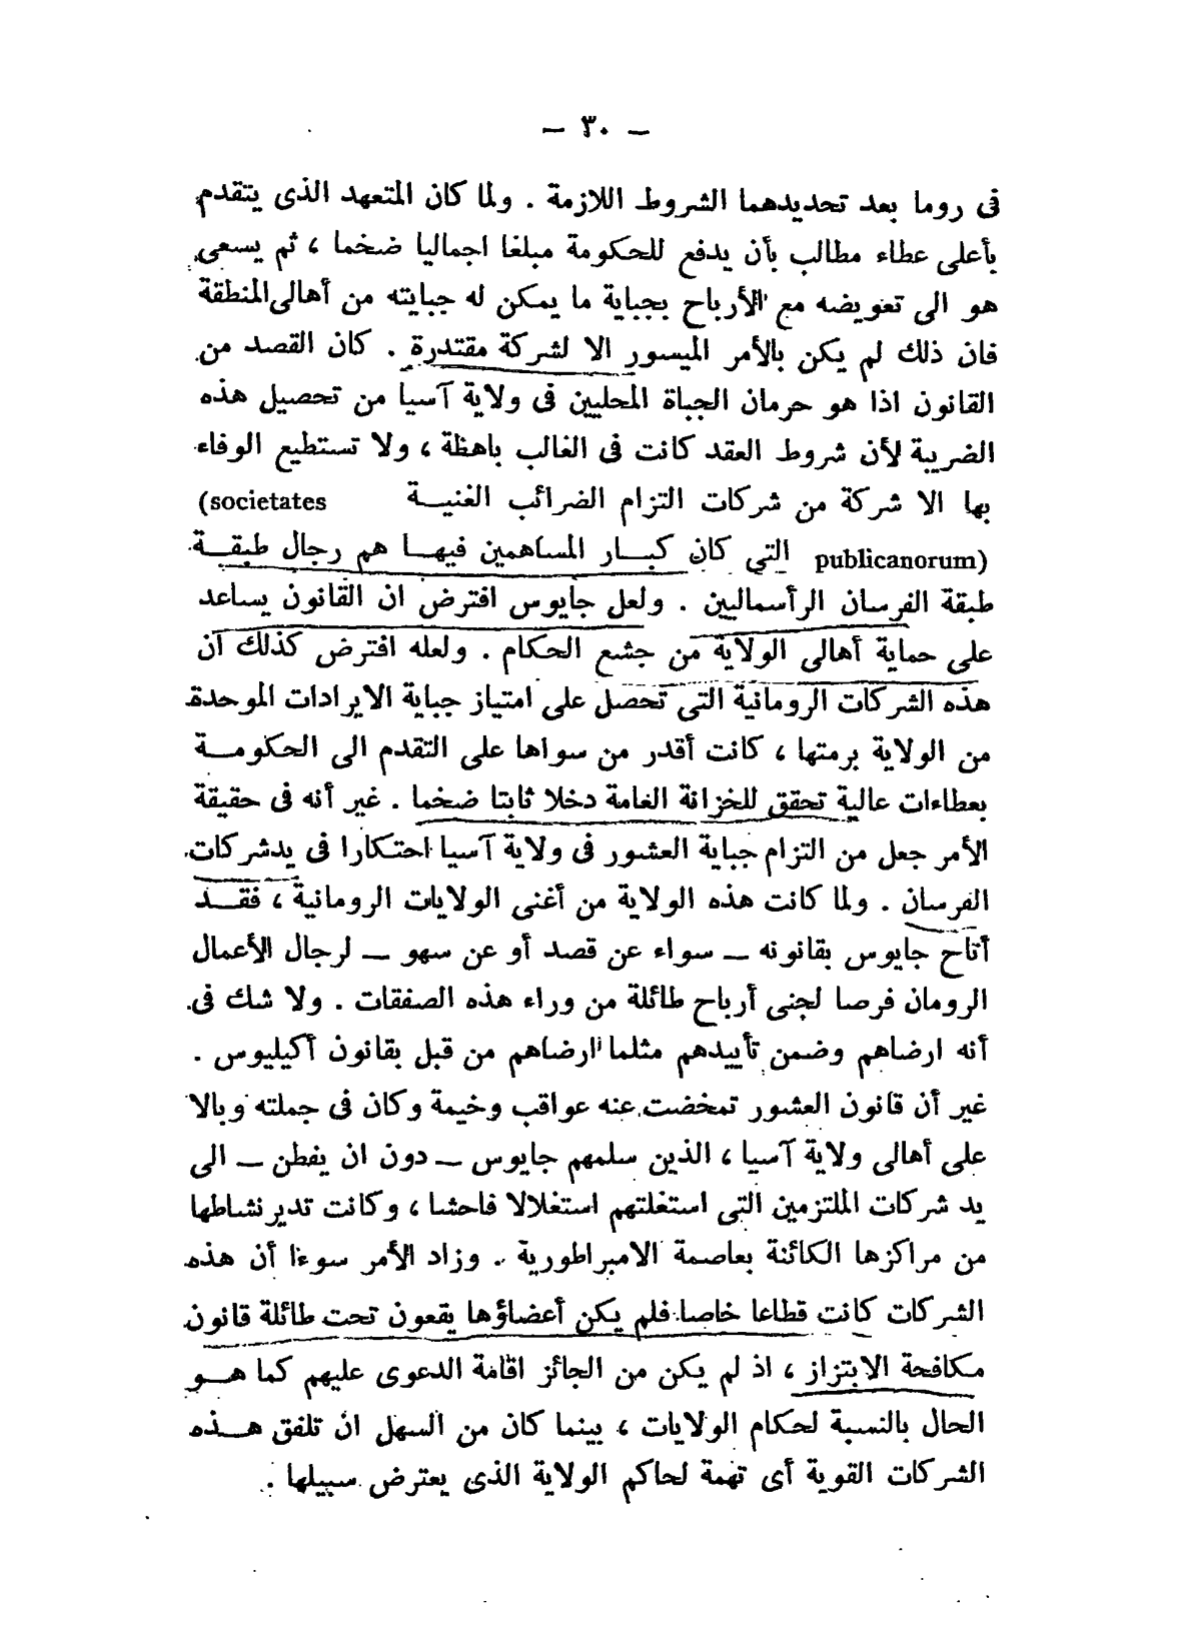 — ٣٠ —
فى روما بعد تحديدهما الشروط اللازمة . ولما كان المتعهد الذى يتقدم
بأعلى عطاء مطالب بأن يدفع للحكومة مبلغا اجماليا ضخما ، ثم يسعى
هو الى تعويضه مع الأرباح بجباية ما يمكن له جبايته من أهالى المنطقة
فان ذلك لم يكن بالأمر الميسور الا لشركة مقتدرة . كان القصد من
القانون اذا هو حرمان الجباة المحليين فى ولاية آسيا من تحصيل هذه
الضريبة لأن شروط العقد كانت فى الغالب باهظة ، ولا تستطيع الوفاء
بها الا شركة من شركات التزام الضرائب الغنيــة (societates
publicanorum) التي كان كبــار المساهمين فيهــا هم رجال طبقــة
طبقة الفرسان الرأسماليين . ولعل جايوس افترض ان القانون يساعد
على حماية أهالى الولاية من جشع الحكام . ولعله افترض كذلك أن
هذه الشركات الرومانية التى تحصل على امتياز جباية الايرادات الموحدة
من الولاية برمتها ، كانت أقدر من سواها على التقدم الى الحكومــة
بعطاءات عالية تحقق للخزانة العامة دخلا ثابتا ضخما . غير أنه فى حقيقة
الأمر جعل من التزام جباية العشور فى ولاية آسيا احتكارا فى يد شركات
الفرسان . ولما كانت هذه الولاية من أغنى الولايات الرومانية ، فقــد
أتاح جايوس بقانونه — سواء عن قصد أو عن سهو — لرجال الأعمال
الرومان فرصا لجنى أرباح طائلة من وراء هذه الصفقات . ولا شك فى
أنه ارضاهم وضمن تأييدهم مثلما ارضاهم من قبل بقانون أكيليوس .
غير أن قانون العشور تمخضت عنه عواقب وخيمة وكان فى جملته وبالا
على أهالى ولاية آسيا ، الذين سلمهم جايوس — دون ان يفطن — الى
يد شركات الملتزمين التى استغلتهم استغلالا فاحشا ، وكانت تدير نشاطها
من مراكزها الكائنة بعاصمة الامبراطورية . وزاد الأمر سوءا أن هذه
الشركات كانت قطاعا خاصا فلم يكن أعضاؤها يقعون تحت طائلة قانون
مكافحة الابتزاز ، اذ لم يكن من الجائز اقامة الدعوى عليهم كما هــو
الحال بالنسبة لحكام الولايات ، بينما كان من السهل ان تلفق هــذه
الشركات القوية أى تهمة لحاكم الولاية الذى يعترض سبيلها .